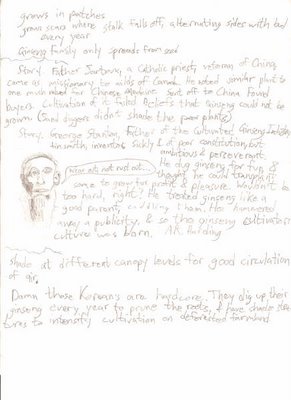 grows in patches
grows scars where stalk falls off, alternating sides with bud
every year
Ginseng family only spreads from seed
Story. Father Jartoux, a Catholic priest, veteran of China,
came as missionary to wilds of Canada. He noted similar plant to
one much used for Chinese Medicine. Sent off to China. Found
buyers. Cultivation of it failed. Beliefs that ginseng could not be
grown (Said diggers didn't shade the poor plants)
Story. George Stanton, Father of the Cultivated Ginseng Industry
tinsmith, inventor, sickly & of poor constitution, but
ambitious & perseverant
He dug ginseng for fun, &
thought he could transplant
Wear out, not rust out...
some to grow for profit & pleasure. Wouldn't be
too hard, right. He treated ginseng like a
good parent, cuddling them. He hammered
away a publicity, & so the ginseng cultivators
culture was born. A.R. Harding
shade at different canopy levels for good circulation
of air.
Damn those Koreans are hardcore. They dig up their
ginseng every year to prune the roots, & have shade struc
tures to intensify cultivation on deforested farmland